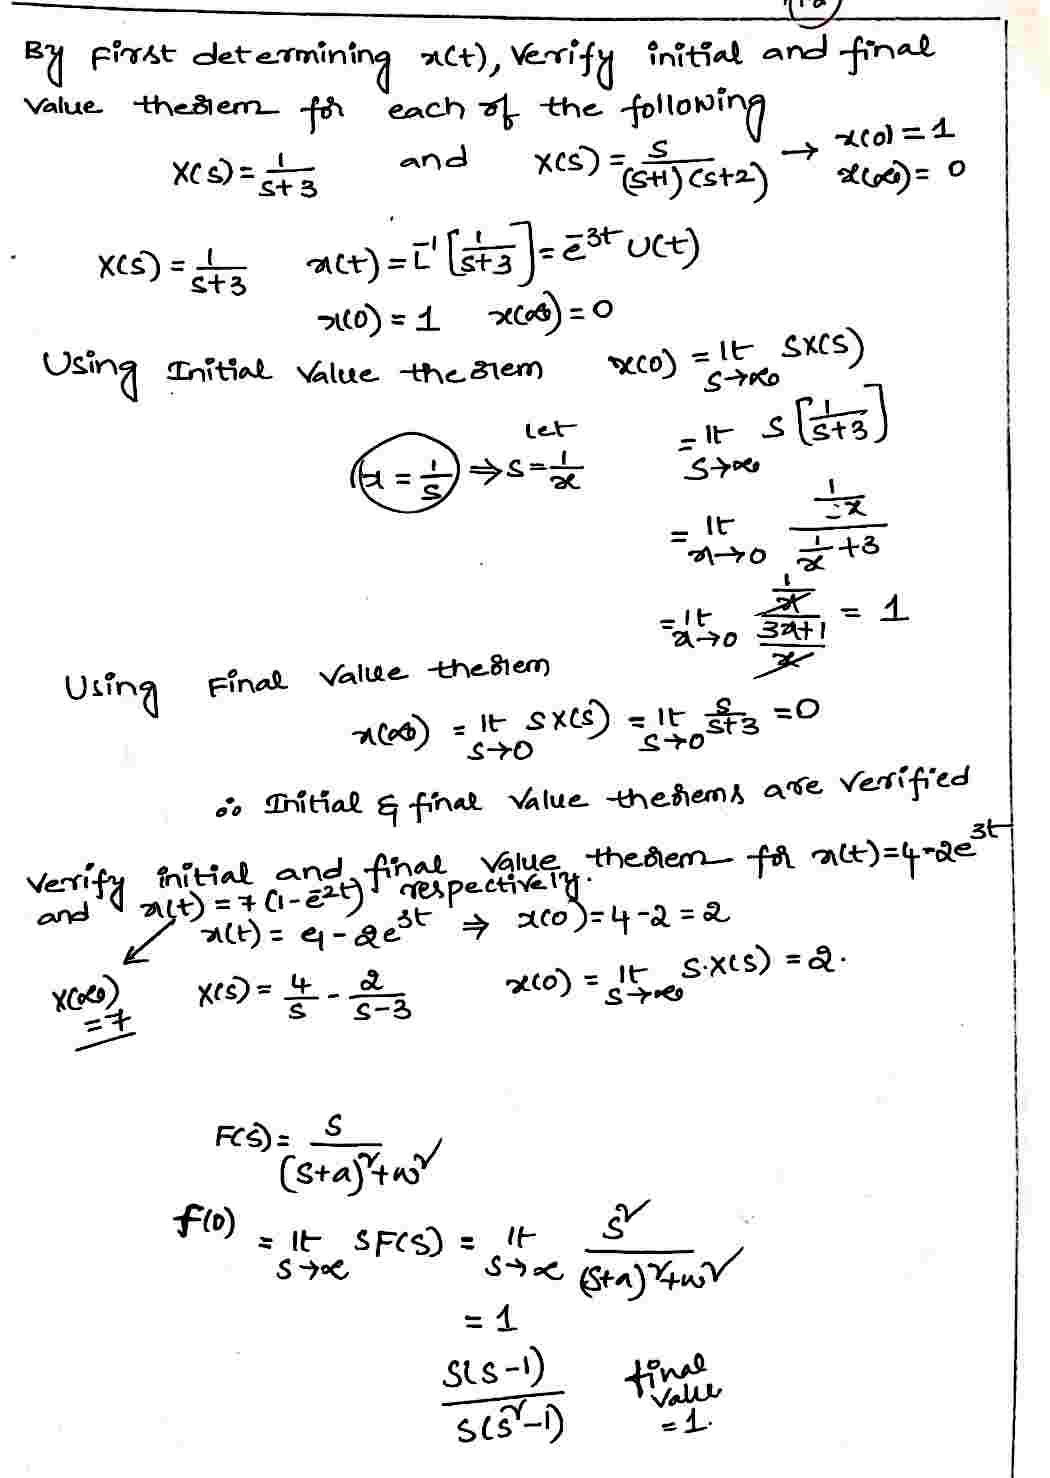 By first determining x(t), Verify initial and final
value theorem for each of the following
X(s) = 1/(s+3) and X(s) = s/((s+1)(s+2)) → x(0) = 1
x(∞) = 0
X(s) = 1/(s+3) x(t) = L⁻¹[1/(s+3)] = e^-3t U(t)
x(0) = 1 x(∞) = 0
Using Initial Value theorem x(0) = lt s→∞ SX(S)
= lt s→∞ S[1/(s+3)]
x = 1/s ⇒ let s = 1/x
= lt x→0 (1/x)/(1/x + 3)
= lt x→0 (1/x)/((3x+1)/x) = 1
Using Final Value theorem
x(∞) = lt s→0 SX(S) = lt s→0 s/(s+3) = 0
∴ Initial & final value theorems are verified
Verify initial and final value theorem for x(t)=4-2e^3t
and x(t) = 7(1-e^-2t) respectively.
x(t) = 4 - 2e^3t ⇒ x(0) = 4-2 = 2
X(∞) = 7
X(s) = 4/s - 2/(s-3) x(0) = lt s→∞ S.X(S) = 2.
F(S) = s/((s+a)²+w²)
f(0) = lt s→∞ SF(S) = lt s→∞ s²/((s+a)²+w²)
= 1
s(s-1)/s(s²-1) final value = 1.